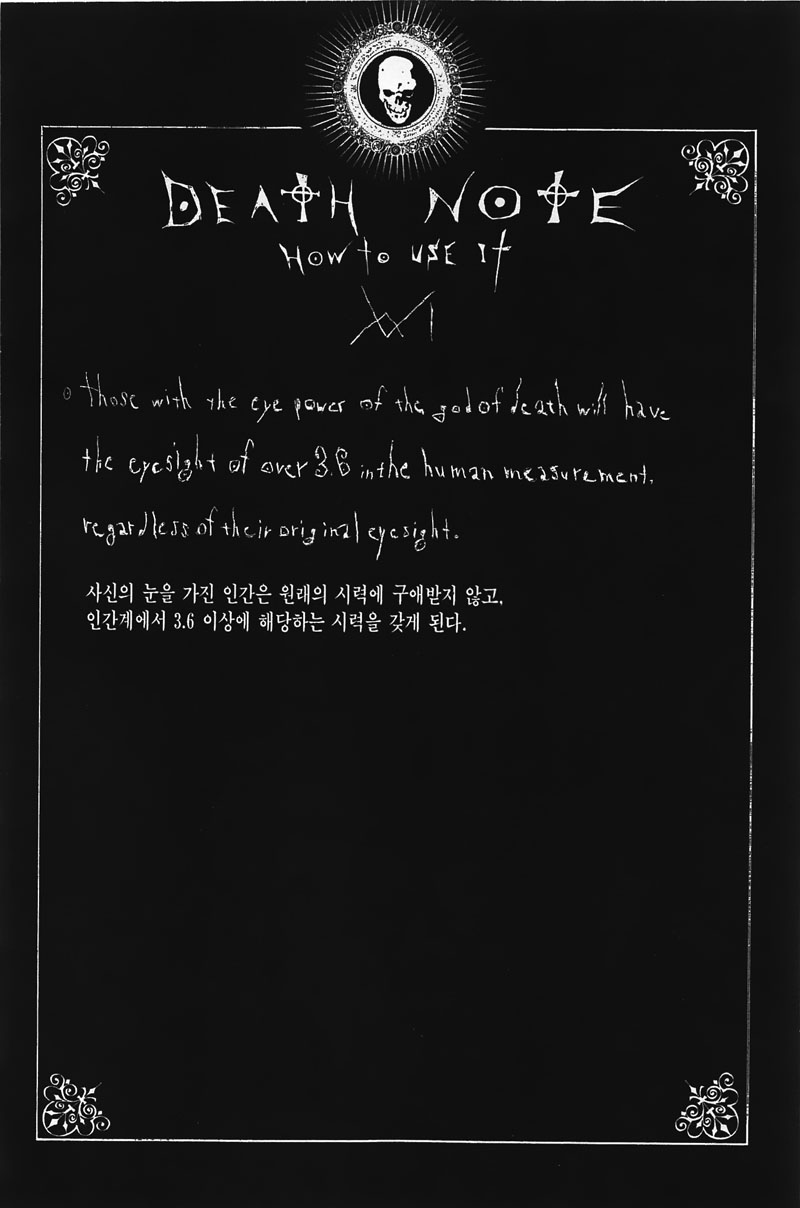 DEATH NOTE
HOW to USE It
XVI
those with the eye power of the god of death will have
the eyesight of over 3.6 in the human measurement,
regardless of their original eyesight.
사신의 눈을 가진 인간은 원래의 시력에 구애받지 않고,
인간계에서 3.6 이상에 해당하는 시력을 갖게 된다.